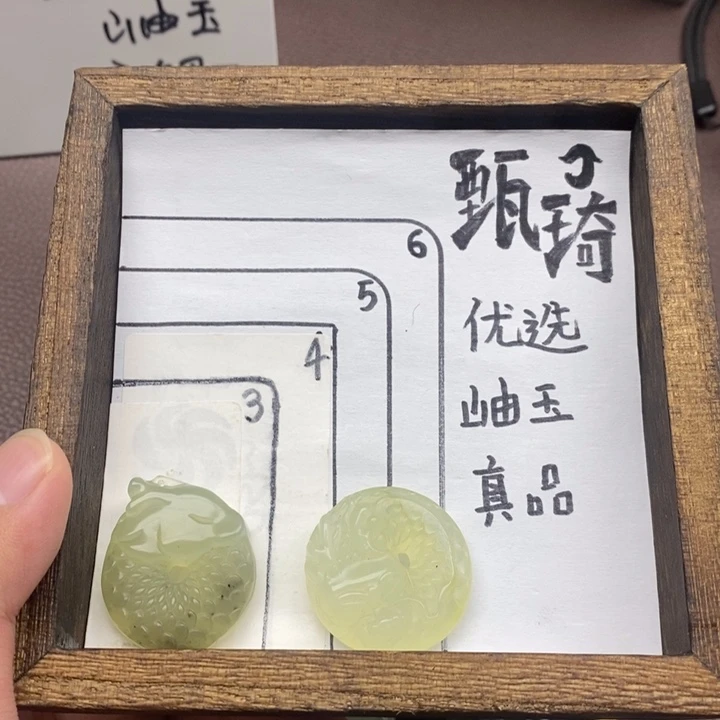 岫玉
甄琦
6
5
4
3
优选
岫玉
真品